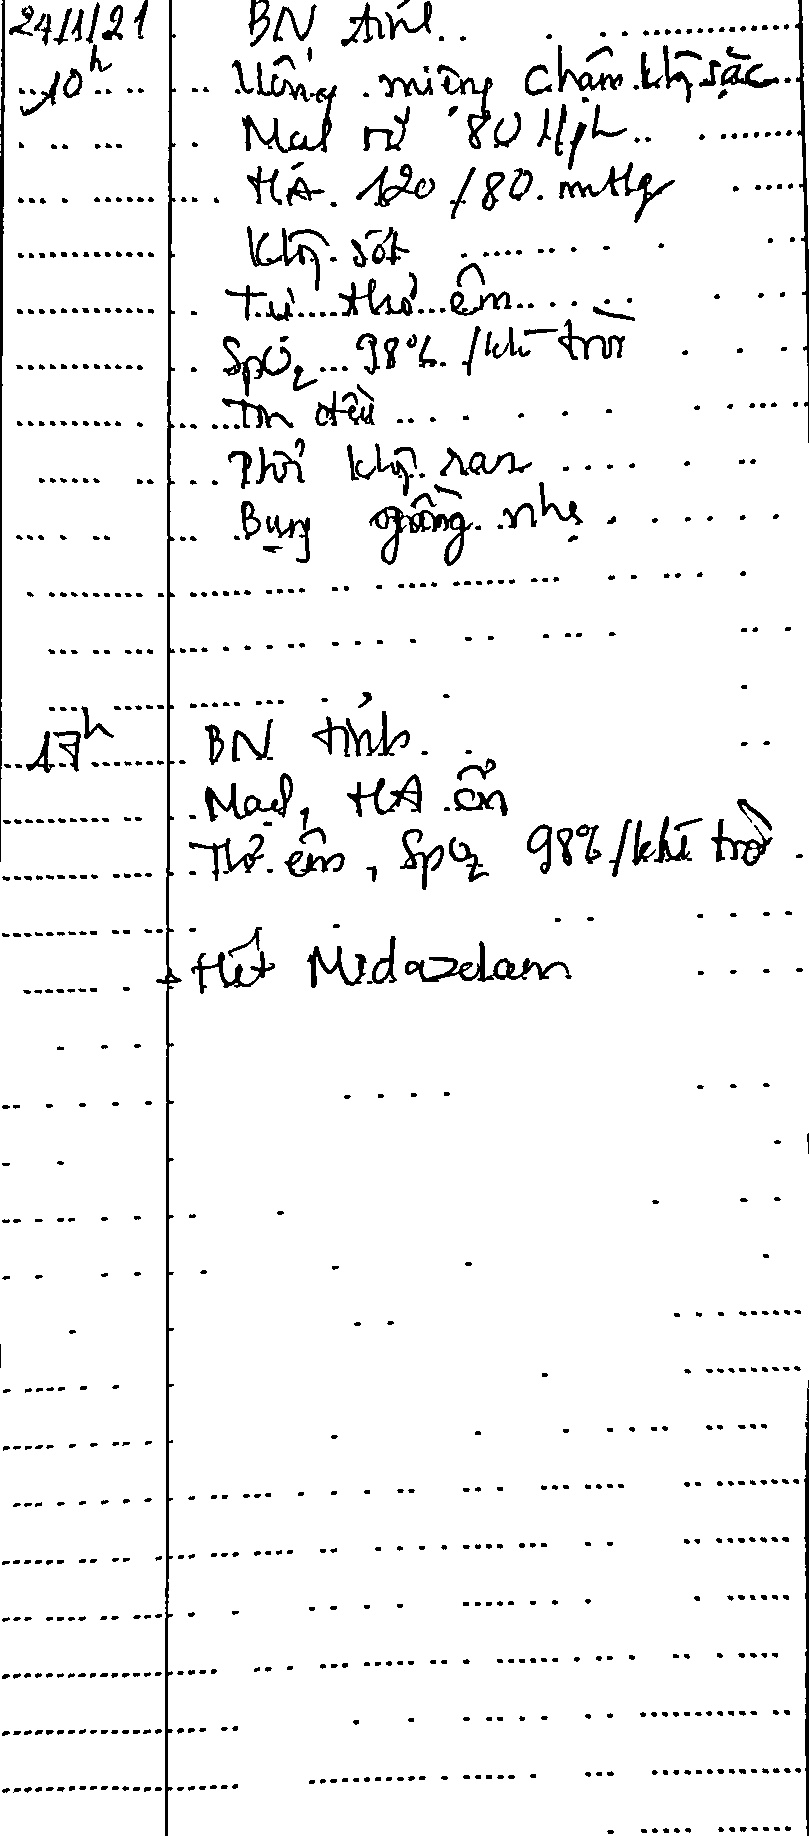 24/1/21 BN tỉnh
10h Uống miệng chậm khg sặc
Mạch rõ 80 l/ph
HA 120/80 mmHg
Khg sốt
Tự thở êm
SpO2 98% /khí trời
Tim đều
Phổi khg ran
Bụng gồng nhẹ
17h BN tỉnh
Mạch, HA ổn
Thở êm, SpO2 98%/khí trời
+ Hết Midazolam